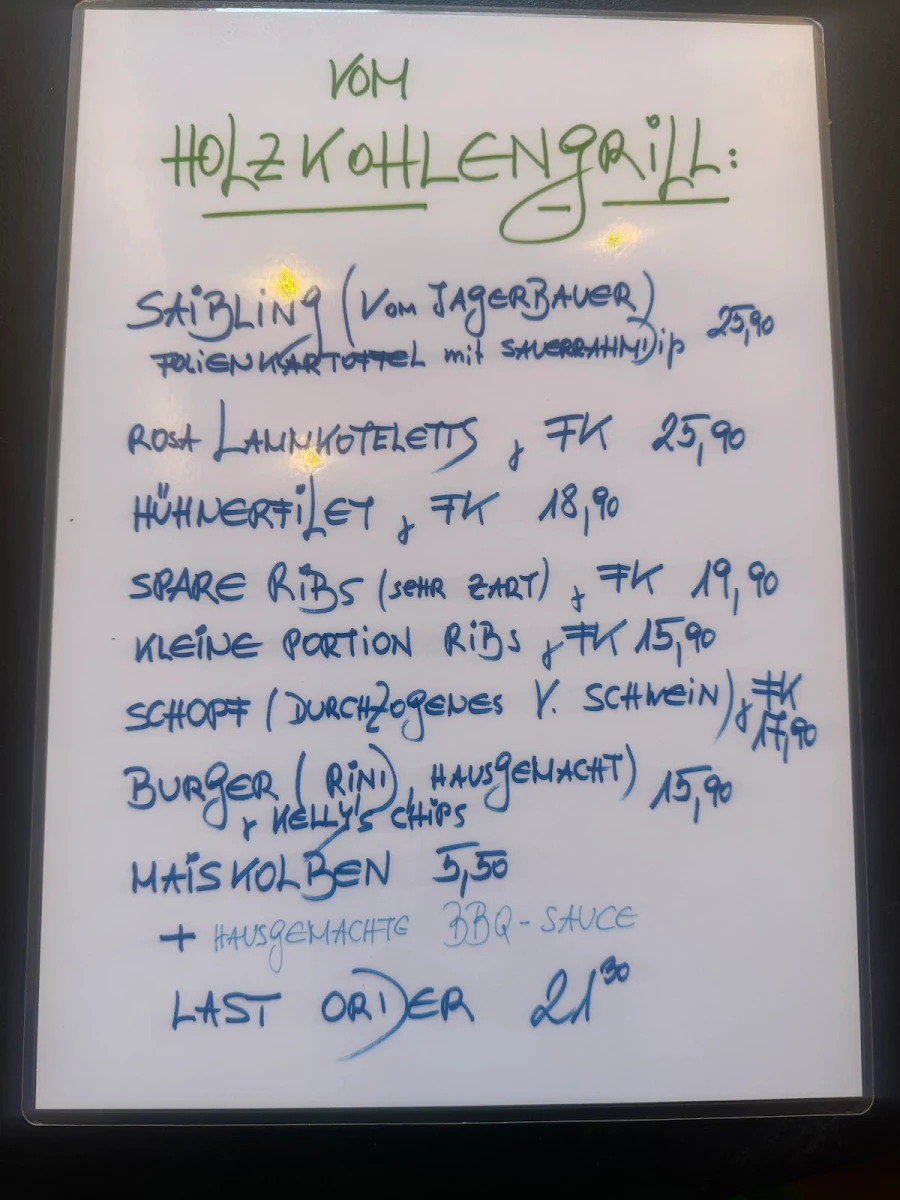 VOM
HOLZKOHLENGRILL:
SAIBLING (VOM JAGERBAUER)
FOLIENKARTOFFEL mit SAUERRAHMDip 25,90
ROSA LAMMKOTELETTS, FK 25,90
HÜHNERFILET, FK 18,90
SPARE RIBS (SEHR ZART), FK 19,90
KLEINE PORTION RIBS, FK 15,90
SCHOPF (DURCHZOGENES V. SCHWEIN), FK
17,90
BURGER (RIND, HAUSGEMACHT) 15,90
+ KELLY'S CHIPS
MAISKOLBEN 5,50
+ HAUSGEMACHTE BBQ-SAUCE
LAST ORDER 21³⁰